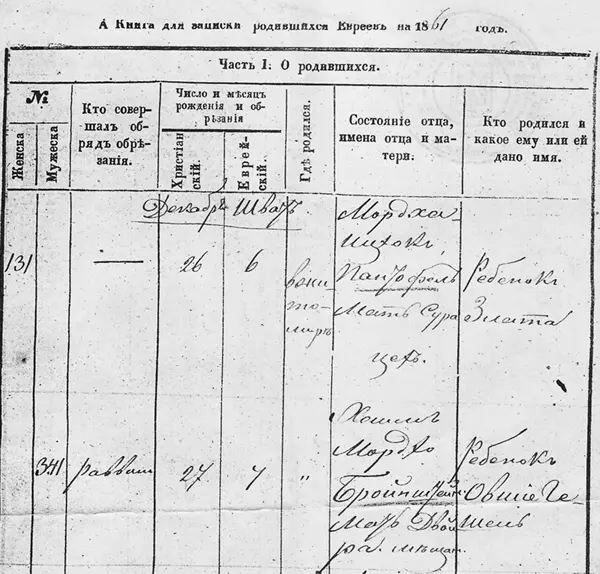 А Книга для записки родившихся Евреевъ на 1861 годъ.
Часть I. О родившихся.
№
Женска
Мужеска
Кто совер-
шалъ об-
рядъ обрѣ-
занія.
Число и мѣсяцъ
рожденія и об-
рѣзанія
Христіан-
скій.
Еврей-
скій.
Гдѣ родился.
Состояніе отца,
имена отца и ма-
тери.
Кто родился и
какое ему или ей
дано имя.
Декабрь Шватъ
131 — 26 6
Мордха
Ицхокъ
Пантофель
Мать Сура
Ребенокъ
Злата
341 раввин 27 7 "
Мордхо
Мать Двой
ра. мѣщан.
Ребенокъ
Овшіе Ге-
шель